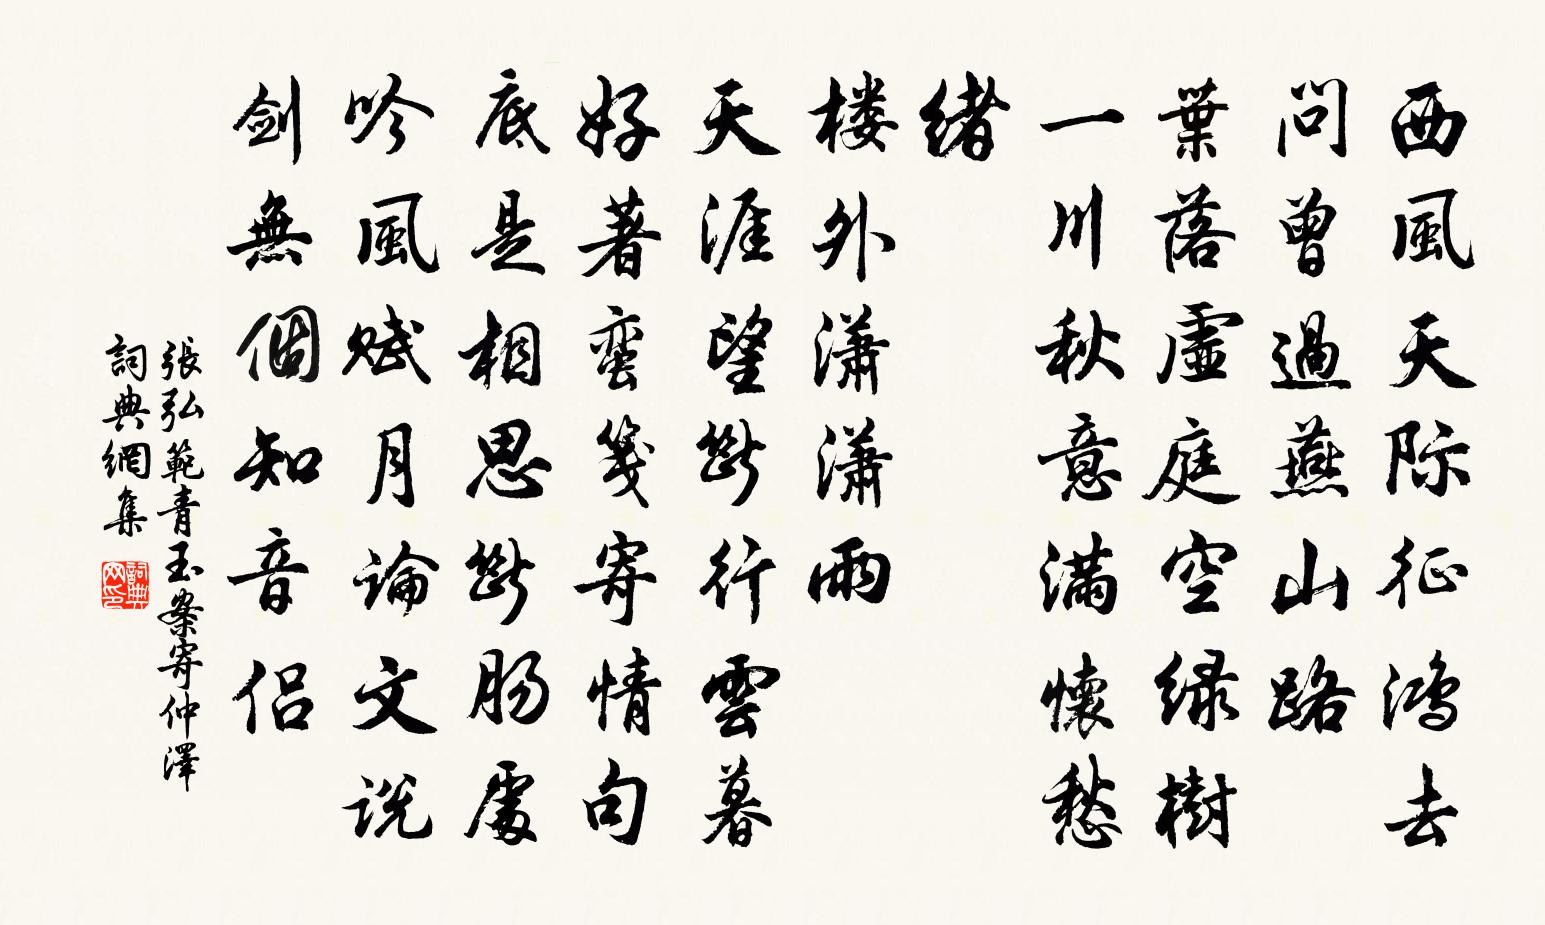 西風天际征鸿去
問曾過燕山路
葉落虛庭空绿樹
一川秋意滿懷愁
绪
楼外潇潇雨
天涯望斷行雲暮
好著蛮箋寄情句
底是相思斷肠處
吟風赋月論文说
剑無個知音侣
張弘範青玉案寄仲澤
詞典網集
詞典网印